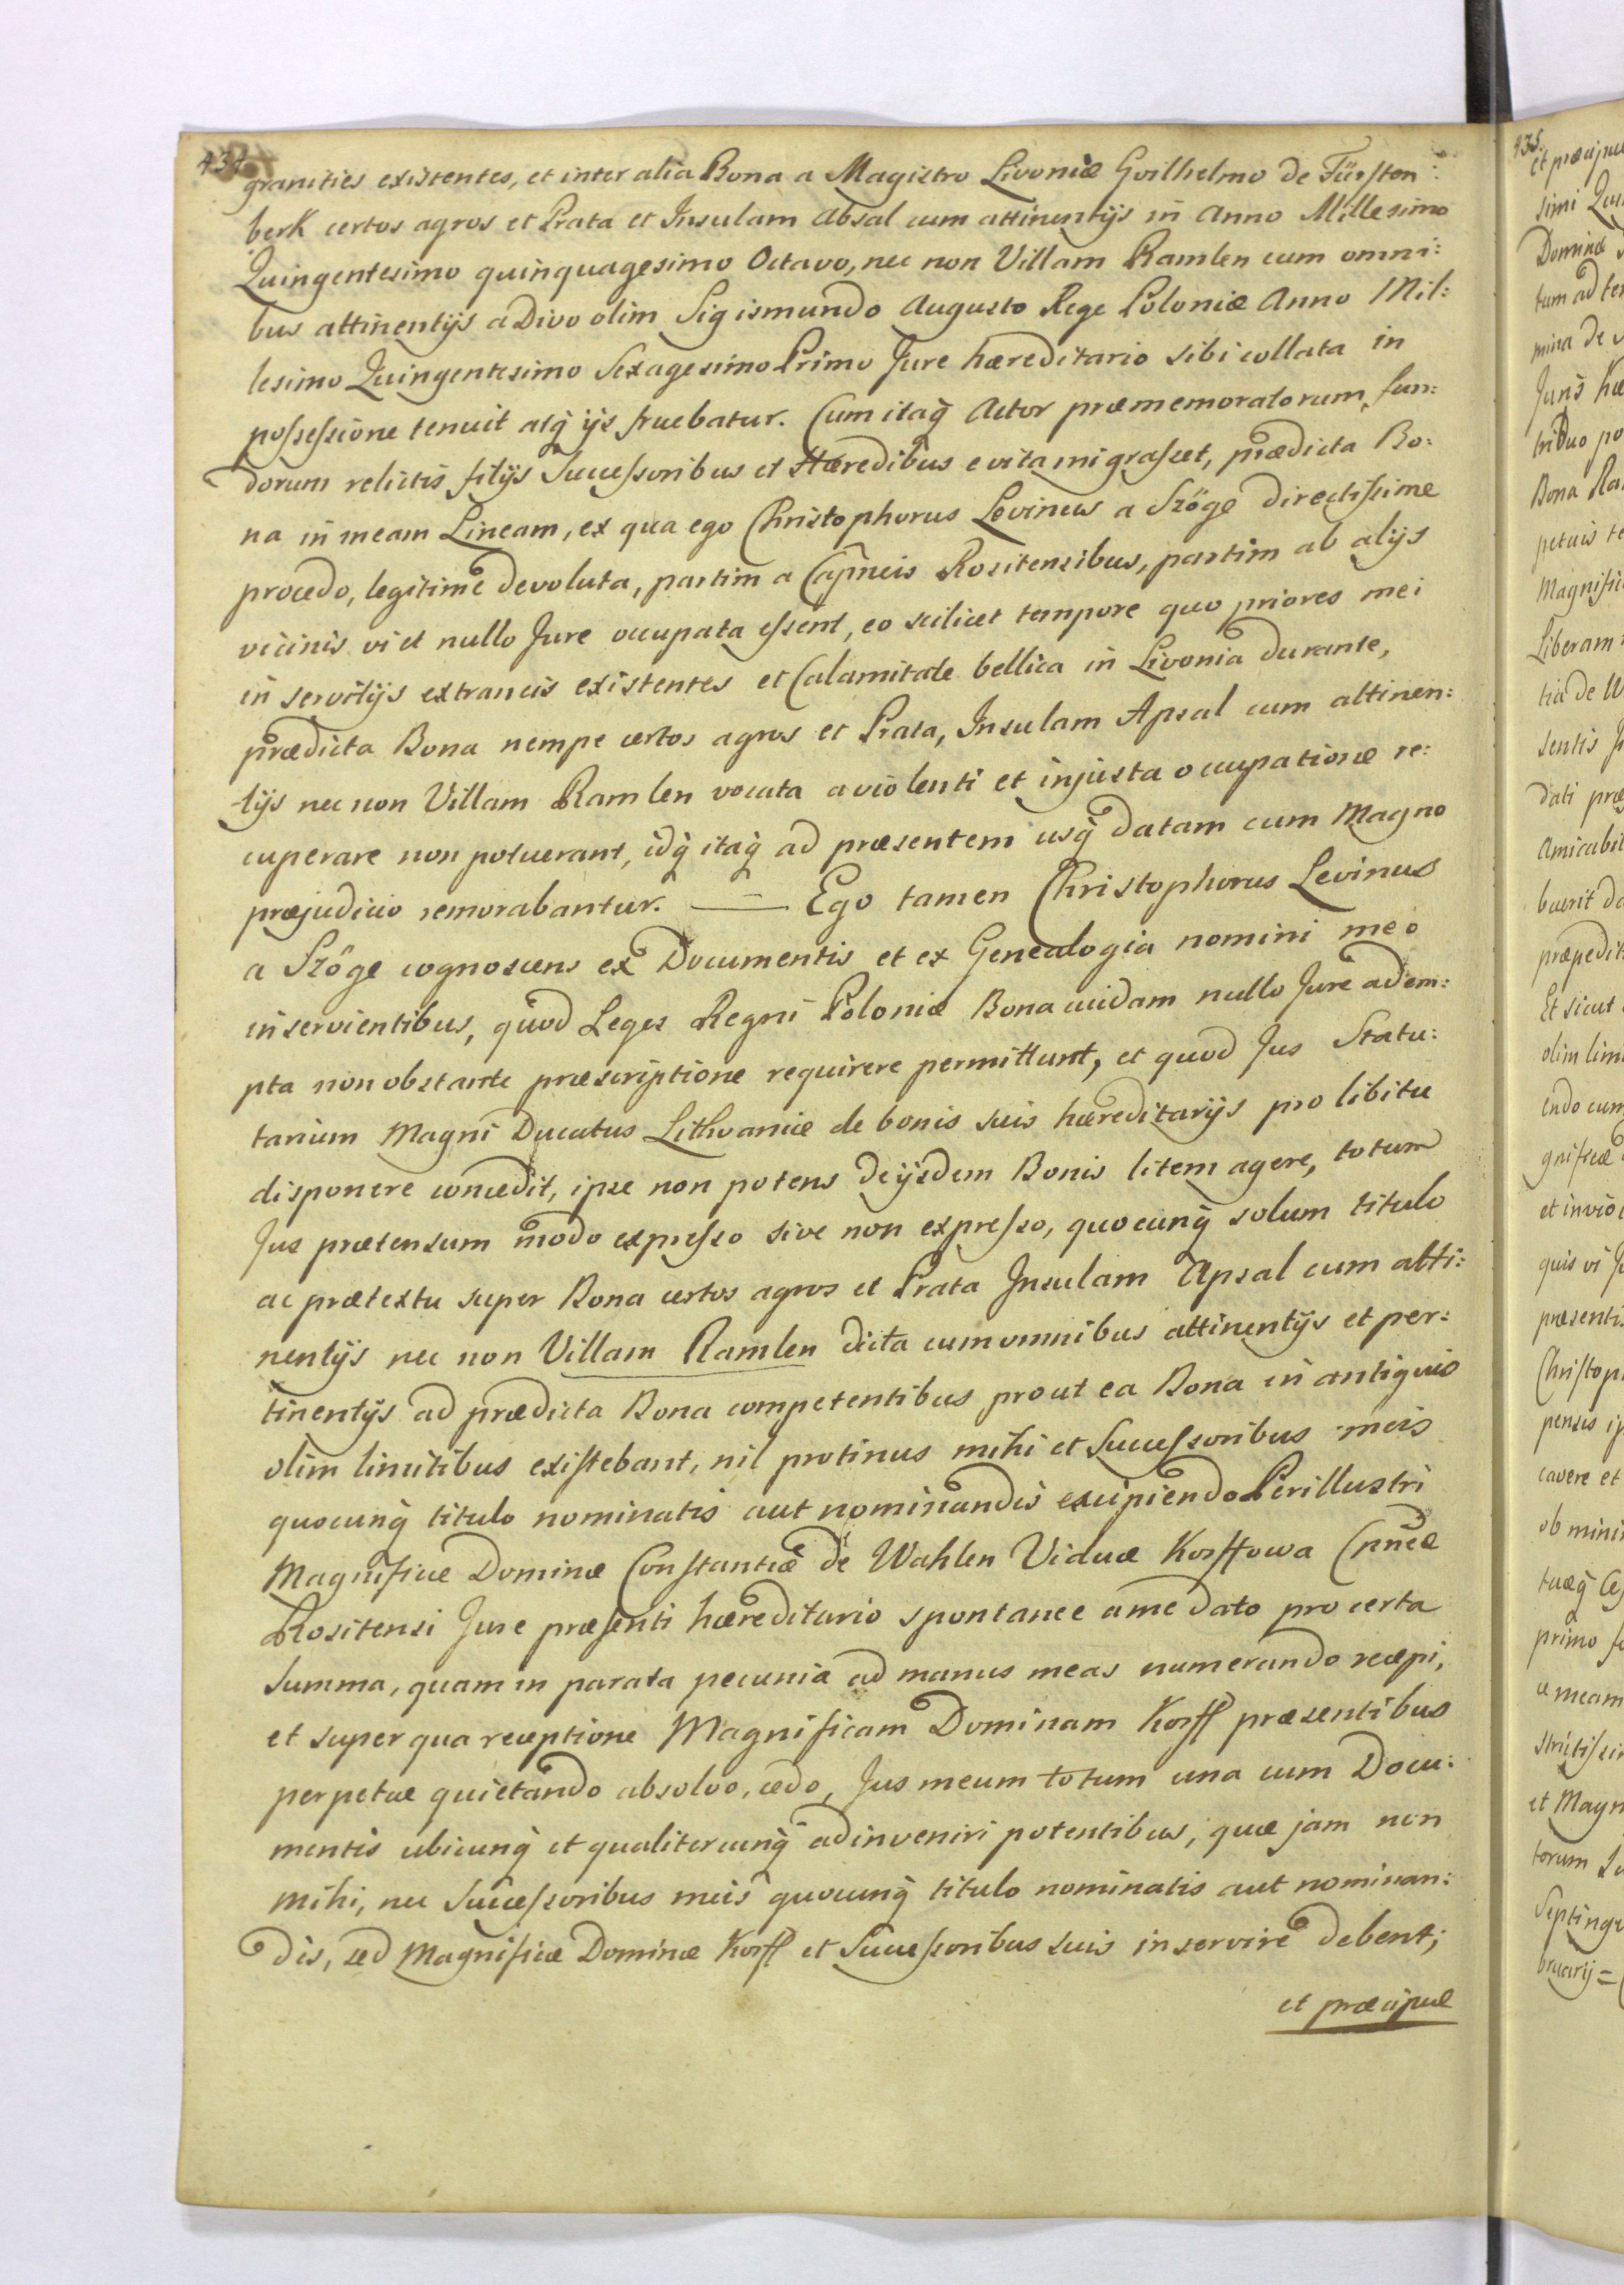 434.
granities existentes, et inter alia Bona a Magistro Livoniæ Gvilhelmo de Fürsten:
berk certos agros et Prata et Insulam Absal cum attinentijs in Anno Millesimo
Quingentesimo quinquagesimo Octavo, nec non Villam Ramlen cum omni:
bus attinentijs a Divo olim Sigismundo Augusto Rege Poloniæ Anno Mil:
lesimo Quingentesimo Sexagesimo Primo Jure hæreditario sibi collata in
possessione tenuit atq̃ ijs fruebatur. Cum itaq̃ Actor præmemoratorum fun:
dorum relictis filijs Successoribus et Hæredibus e vita migrasset, prædicta Bo:
na in meam Lineam, ex qua ego Christophorus Levinus a Szöge directissime
procedo, legitime devoluta, partim a Cap̃neis Rositensibus, partim ab alijs
vicinis vi et nullo Jure occupata essent, eo scilicet tempore quo priores mei
in servitijs extraneis existentes et Calamitate bellica in Livonia durante,
prædicta Bona nempe certos agros et Prata, Insulam Apsal cum attinen:
tijs nec non Villam Ramlen vocata a violenti et injusta occupationæ re:
cuperare non potuerant, idq̃ itaq̃ ad præsentem usq̃ datam cum Magno
præjudicio remorabantur. — Ego tamen Christophorus Levinus
a Szöge cognoscens ex Documentis et ex Genealogia nomini meo
inservientibus, quod Leges Regni Poloniæ Bona cuidam nullo Jure adem:
pta non obstante præscriptione requirere permittunt, et quod Jus Statu:
tarium Magni Ducatus Lithvaniæ de bonis suis hæreditarijs pro libitu
disponere concedit, ipse non potens de ijsdem Bonis litem agere, totum
Jus prætensum modo expresso sive non expresso, quocunq̃ solum titulo
ac prætextu super Bona certos agros et Prata Insulam Apsal cum atti:
nentijs nec non Villam Ramlen dicta cum omnibus attinentijs et per:
tinentijs ad prædicta Bona competentibus prout ea Bona in antiquis
olim limitibus existebant, nil protinus mihi et Successoribus meis
quocunq̃ titulo nominatis aut nominandis excipiendo Perillustri
Magnificæ Dominæ Constantiæ de Wahlen Viduæ Korffowa Cpneæ
Rositensi Jure præsenti hæreditario spontanee a me dato pro certa
Summa, quam in parata pecunia ad manus meas numerando recæpi,
et super qua receptione Magnificam Dominam Korff præsentibus
perpetuæ quietando absolvo, cedo, Jus meum totum una cum Docu:
mentis ubicunq̃ et qualitercunq̃ adinveniri potentibus, quæ jam non
mihi, nec Successoribus meis quocunq̃ titulo nominatis aut nominan:
dis, sed Magnificæ Dominæ Korff et Successoribus suis inservire debent;
et præcipuæ
435.
et præcipu
simi
Dominæ
tum ad
mina de
Juris hæ
triduo po
Bona Ra
petuis te
Magnific
Liberam
tia de W
sentis
dati præ
Amicabil
buerit
præpedit
Et sicut
olim lim
endo cum
gnificæ
et invio
quis vi
præsentis
Christoph
pensis
cavere et
ob mini
tuæq̃
primo
e meam
strictissi
et Magn
torum
Septing
bruarij =